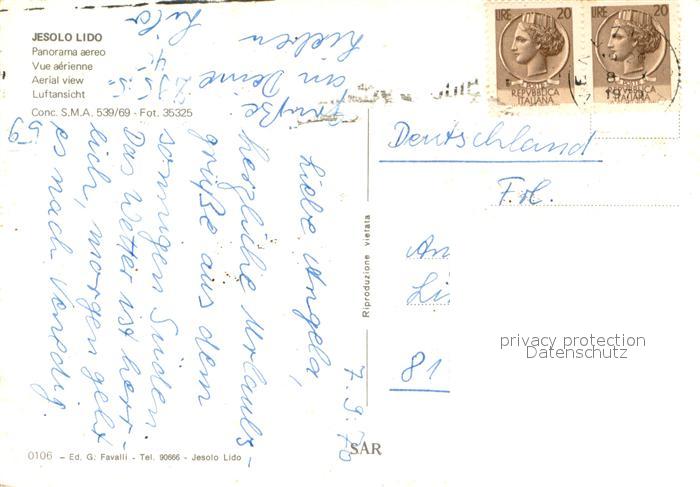 JESOLO LIDO
Panorama aereo
Vue aérienne
Aerial view
Luftansicht
Conc. S.M.A. 539/69 - Fot. 35325
LIRE 20
REPVBBLICA
ITALIANA
LIRE 20
REPVBBLICA
ITALIANA
Deutschland
An
81
7.9.70
Liebe Angela,
herzliche Urlaubs-
grüße aus dem
sonnigen Süden.
Das Wetter ist herr-
lich, morgen geht
es nach Venedig.
Grüße
an Deine
Lieben
Riproduzione vietata
SAR
0106 – Ed. G. Favalli - Tel. 90666 - Jesolo Lido
privacy protection
Datenschutz